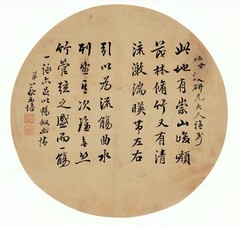 研兄大人
此地有崇山峻嶺
茂林脩竹又有清
流激湍暎帶左右
引以為流觴曲水
列坐其次雖無絲
竹管弦之盛而一觴
一詠亦足以暢叙幽情